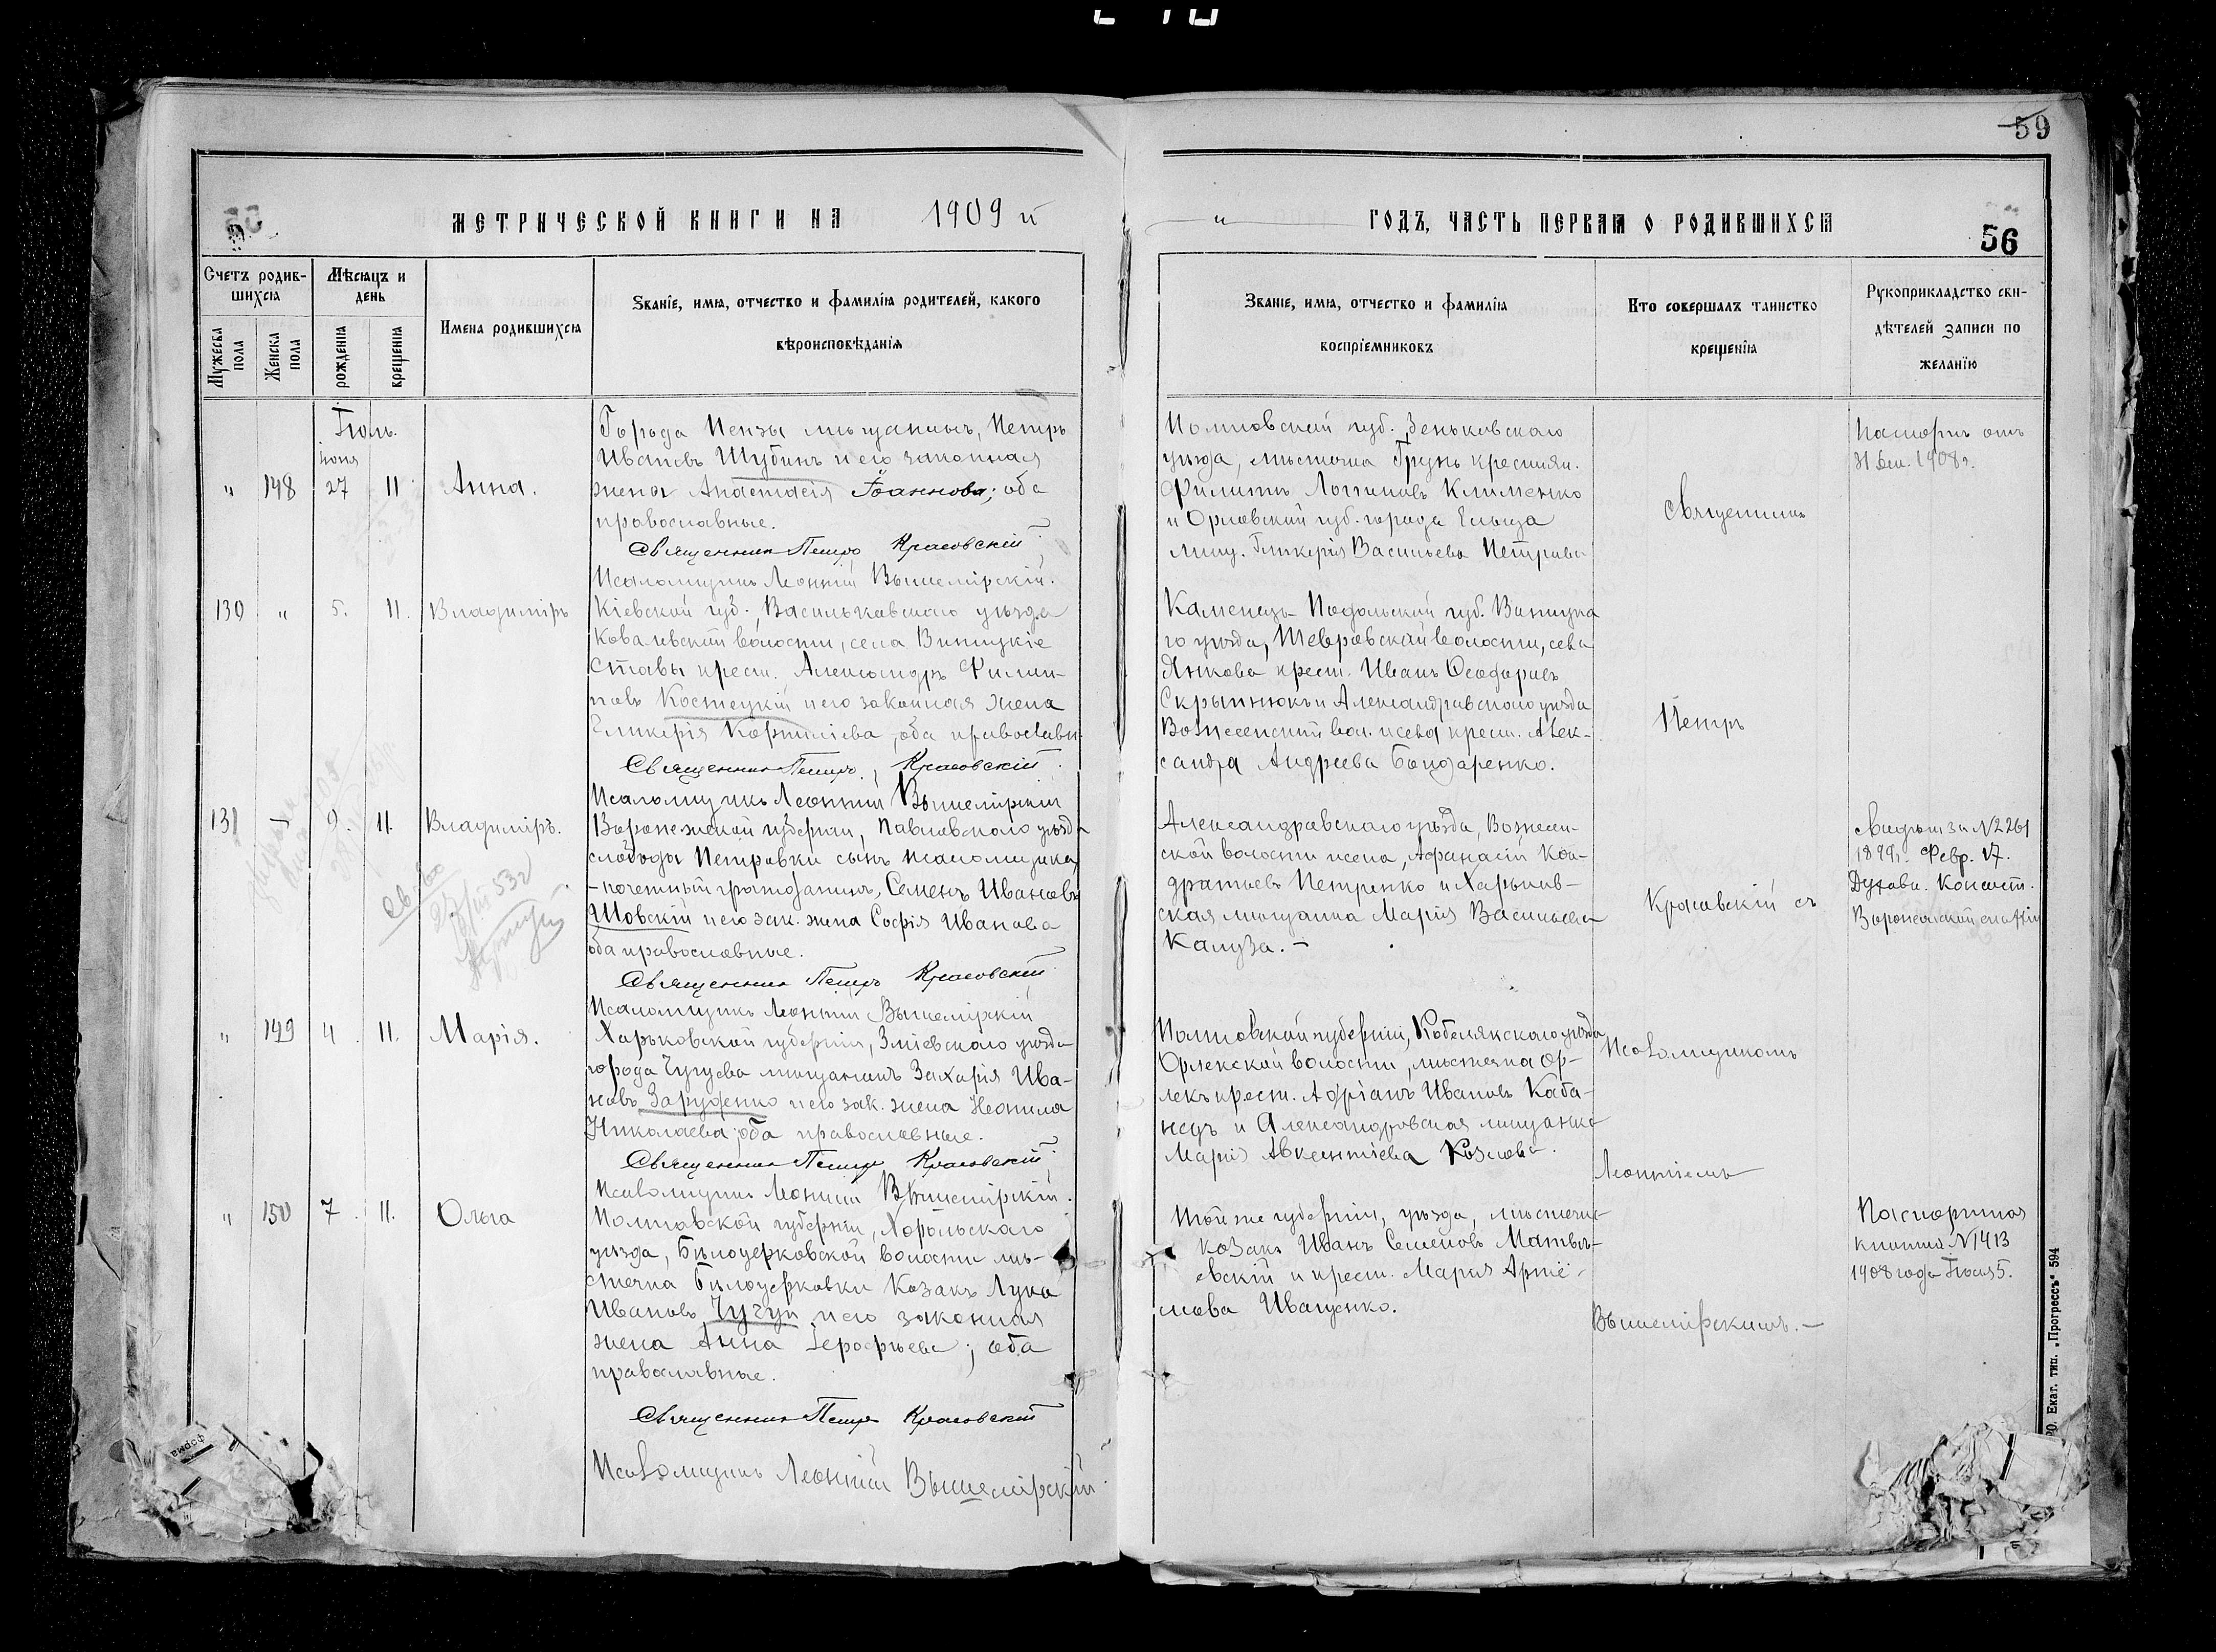 59
МЕТРИЧЕСКОЙ КНИГИ НА 1909 й
Счетъ родив-
шихся
Мѣсяцъ и
день
Мужеска
пола
Женска
пола
рожденія
крещенія
Имена родившихся
Званіе, имя, отчество и фамилія родителей, какого
вѣроисповѣданія
Іюль.
Іюня
" 148 27 11 Анна.
Города Пензы мѣщанинъ, Петръ
Ивановъ Шубинъ и его законная
жена Анастасія Іоаннова; оба
православные.
Священникъ Петръ Красовскій
Псаломщикъ Леонтій Вышемірскій.
130 " 5. 11. Владиміръ
Кіевской губ., Васильковскаго уѣзда
Ковалевской волости, села Виницкіе
Ставы крест. Александръ Филип-
повъ Костецкій и его законная жена
Гликерія Корниліева, оба православн.
Священникъ Петръ Красовскій
Псаломщикъ Леонтій Вышемірскій
131 — 9. 11. Владиміръ.
Воронежской губерніи, Павловскаго уѣзда
слободы Петровки сынъ псаломщика,
-почетный гражданинъ, Семенъ Ивановъ
Шовскій и его зак. жена Софія Иванова
оба православные.
Священникъ Петръ Красовскій
Псаломщикъ Леонтій Вышемірскій
" 149 4. 11. Марія.
Харьковской губерніи, Зміевскаго уѣзда
города Чугуева мѣщанинъ Захарія Ива-
новъ Заруденко и его зак. жена Неонила
Николаева; оба православные.
Священникъ Петръ Красовскій
Псаломщикъ Леонтій Вышемірскій.
" 150 7. 11. Ольга
Полтавской губерніи, Хорольскаго
уѣзда, Бѣлоцерковской волости мѣ-
стечка Бѣлоцерковки Козакъ Лука
Ивановъ Чугуй и его законная
жена Анна Іерофѣева; оба
православные.
Священникъ Петръ Красовскій
Псаломщикъ Леонтій Вышемірскій.
" ГОДЪ, ЧАСТЬ ПЕРВАЯ О РОДИВШИХСЯ
56
Званіе, имя, отчество и фамилія
воспріемниковъ
Кто совершалъ таинство
крещенія
Рукоприкладство сви-
дѣтелей записи по
желанію
Полтовской губ. Зеньковскаго
уѣзда, мѣстечка Грунь крестьян.
Филиппъ Логгиновъ Клименко
и Орловской губ. города Ельца
мѣщ. Гликерія Васильева Петрова
Паспортъ отъ
31 Дек. 1908 г.
Каменецъ-Подольской губ. Виницка
го уѣзда, села
Янкова крест. Иванъ Ѳеодоровъ
Скрыпнюкъ и Александровскаго уѣзда
Вознесенской вол. и села крест. Алек-
сандра Андреева Бондаренко.
Александровскаго уѣзда, Вознесен-
ской волости и села, Афанасій Кон-
дратьевъ Петренко и Харьков-
ская мѣщанка Марія Васильева
Калуза. —
Свидѣт. за №2261
1899 г. Февр. 17.
Духовн. Консист.
Полтовской губерніи, Кобелякскаго уѣзда
Орлекской волости, мѣстечка Ор-
лекъ крест. Адріанъ Ивановъ Каба-
нецъ и Александровская мѣщанка
Марія Авксентіева Козлова.
Той же губерніи, уѣзда, мѣстечка
козакъ Иванъ Семеновъ Матвѣ-
евскій и крест. Марія Артё-
мова Иващенко.
Паспортная
книжка №1413
1908 года Іюля 5.
Священникъ
Петръ
Красовскій съ
Псаломщикомъ
Леонтіемъ
Вышемірскимъ. —
Екат. тип. „Прогрессъ“ 594
форма